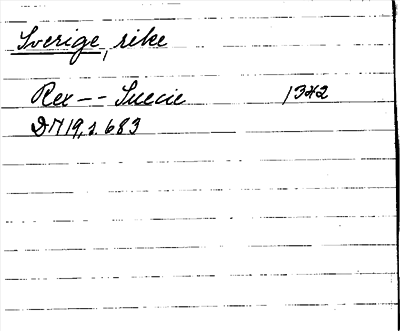 Sverige, rike
Rex -- Suecie 1342
DN 19, s. 683